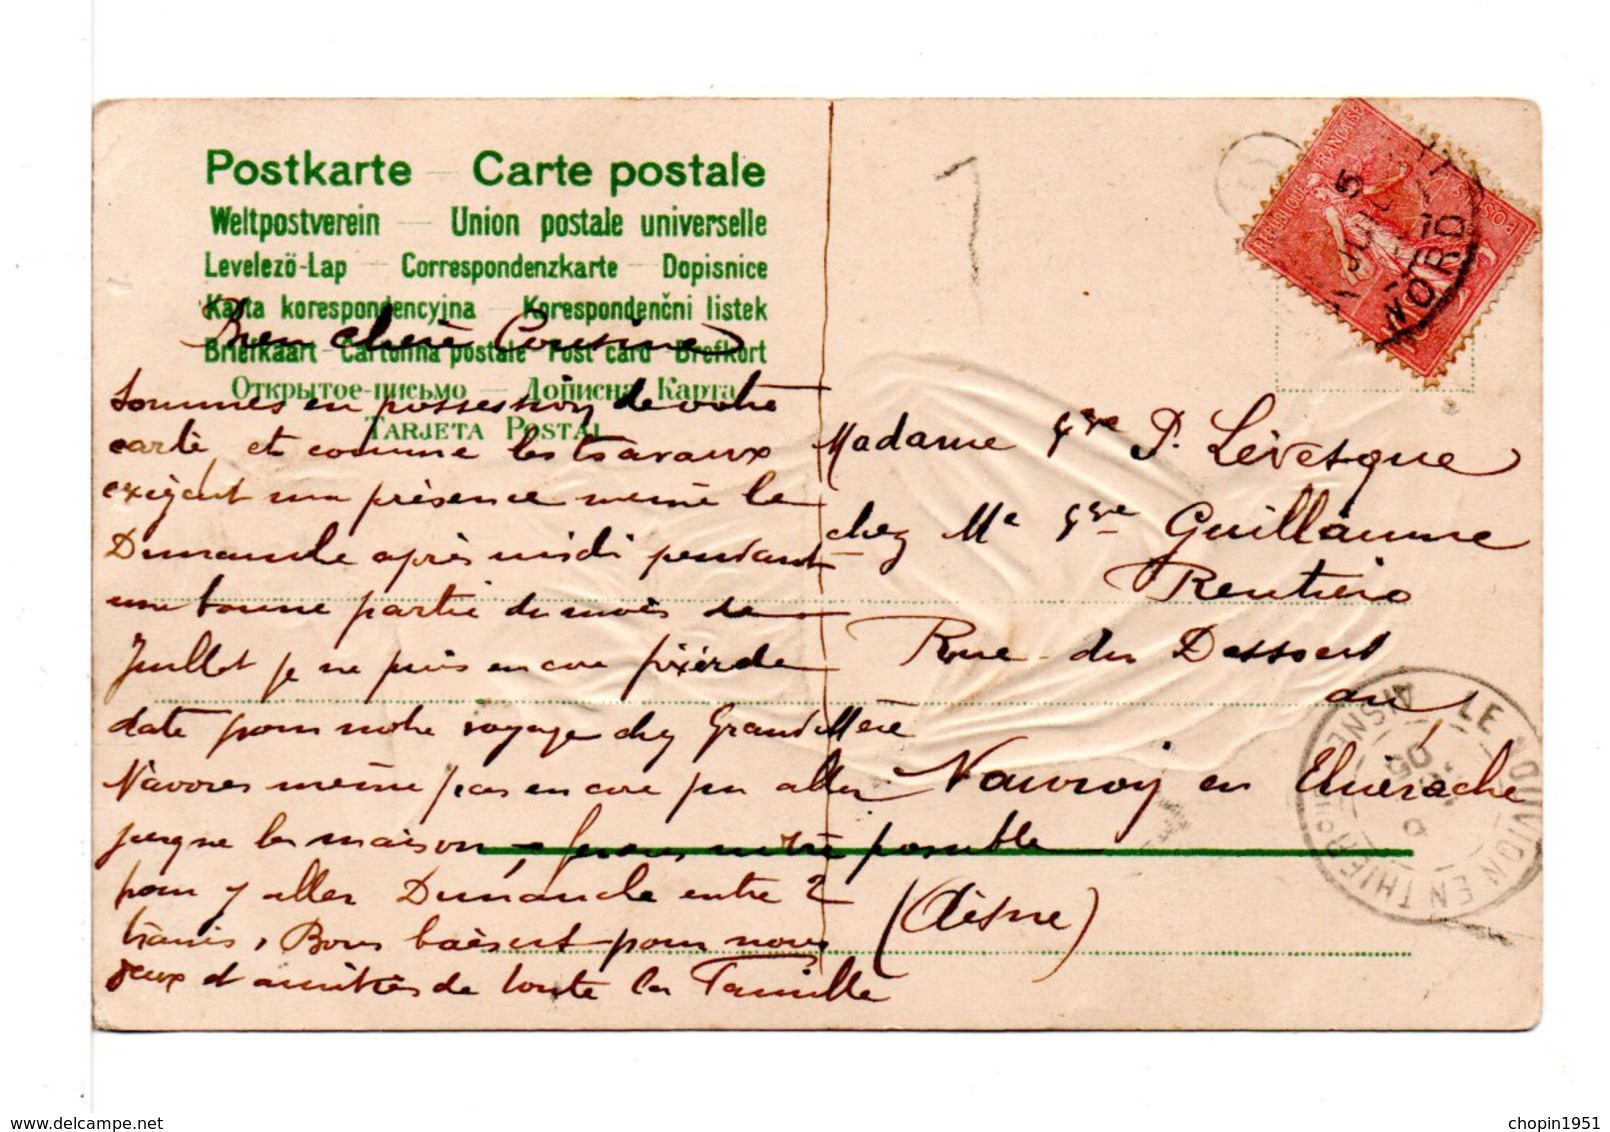 Postkarte — Carte postale
Weltpostverein — Union postale universelle
Levelezö-Lap — Correspondenzkarte — Dopisnice
Karta korespondencyjna — Korespondenčni listek
Brieikaart — Cartolina postale — Post card — Brefkort
Открытое-письмо — Дописна Карта
TARJETA POSTAL
Bien chère Cousine
Sommes en possession de votre
carte, et comme les travaux
exigent ma présence même le
Dimanche après midi pendant
une bonne partie du mois de
Juillet je ne puis encore fixer de
date pour notre voyage chez Grand Mère
N'avons même pas encore pu aller
jusque la maison, ferons notre possible
pour y aller Dimanche entre 2
trains, Bons baisers pour nous
deux d'amitiés de toute la Famille
Madame Gve P. Lévesque
chez Me Gve Guillaume
Rentière
Rue du Dessert
au
Nouvion en Thiérache
(Aisne)
REPUBLIQUE FRANÇAISE
POSTES
NORD
LE NOUVION EN THIERACHE
AISNE
05
delcampe.net
chopin1951